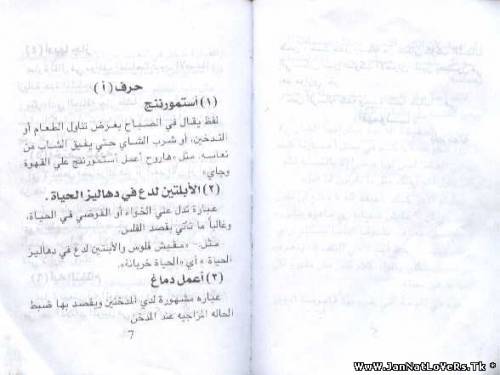 حرف (أ)
(١) أستمورننج
لفظ يقال في الصباح بغرض تناول الطعام أو
التدخين، أو شرب الشاي حتي يفيق الشاب من
نعاسه. مثل «هاروح أعمل أستمورننج علي القهوة
وجاي»
(٢) الأبلتين لدع في دهاليز الحياة.
عبارة تدل علي الخواء أو الفوضي في الحياة،
وغالباً ما تأتي بقصد الفلس.
مثل:- «مفيش فلوس والأبلتين لدع في دهاليز
الحياة» أي «الحياة خربانة».
(٣) أعمل دماغ
عباره مشهورة لدي المدخنين ويقصد بها ضبط
الحاله المزاجيه عند المدخن
7
WwW.JanNatLoveRs.Tk *